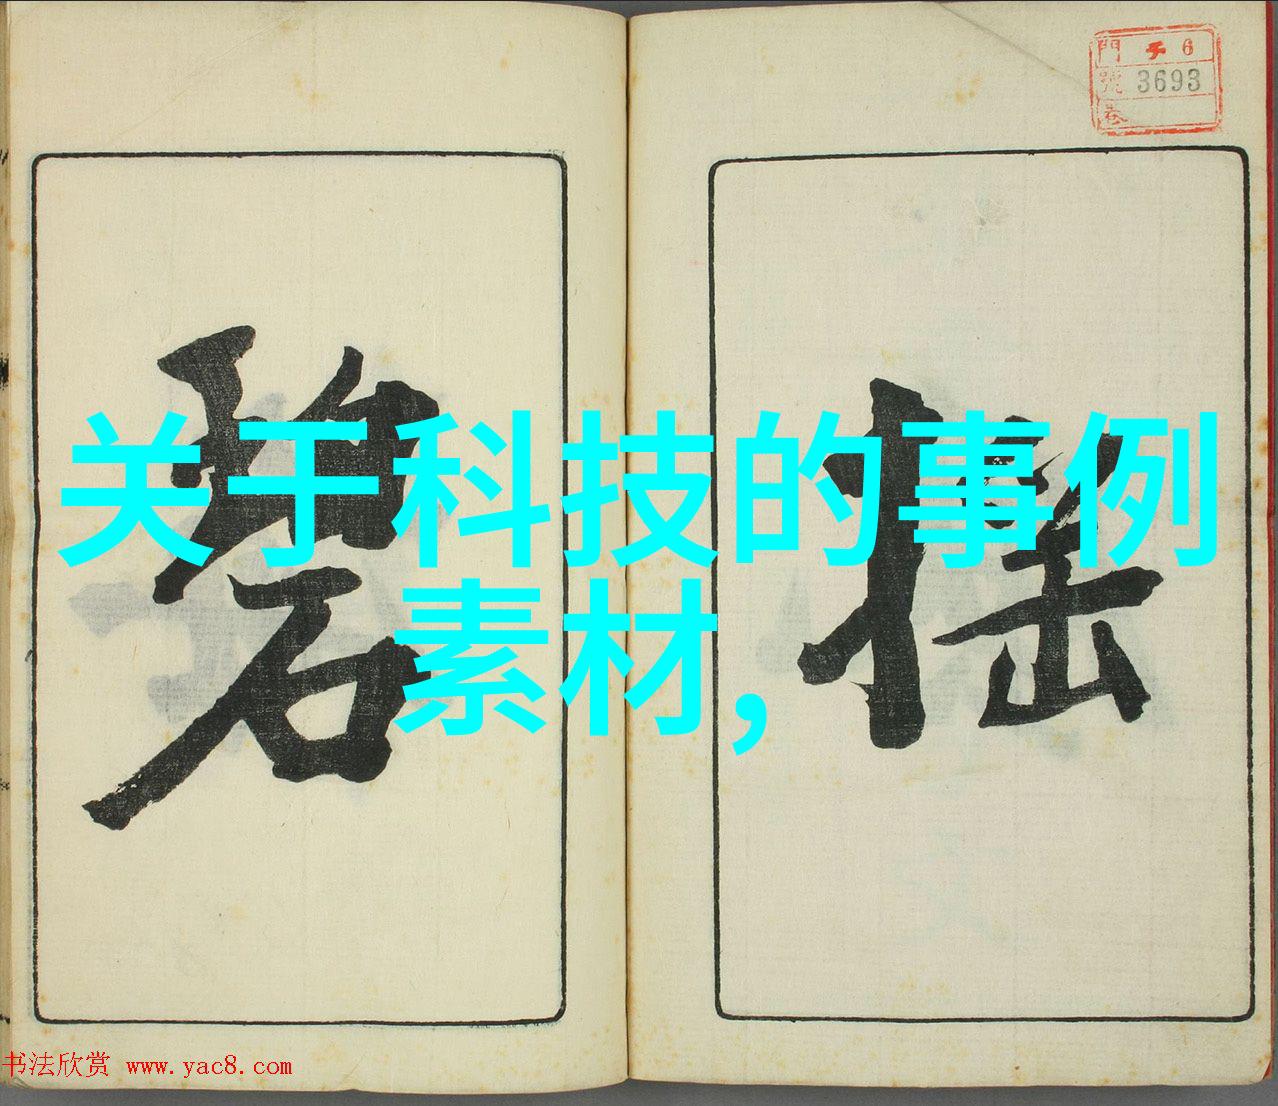 門 子 6
號 3693
卷
搖
碧
关于科技的事例
素材,
书法欣赏 www.yac8.com